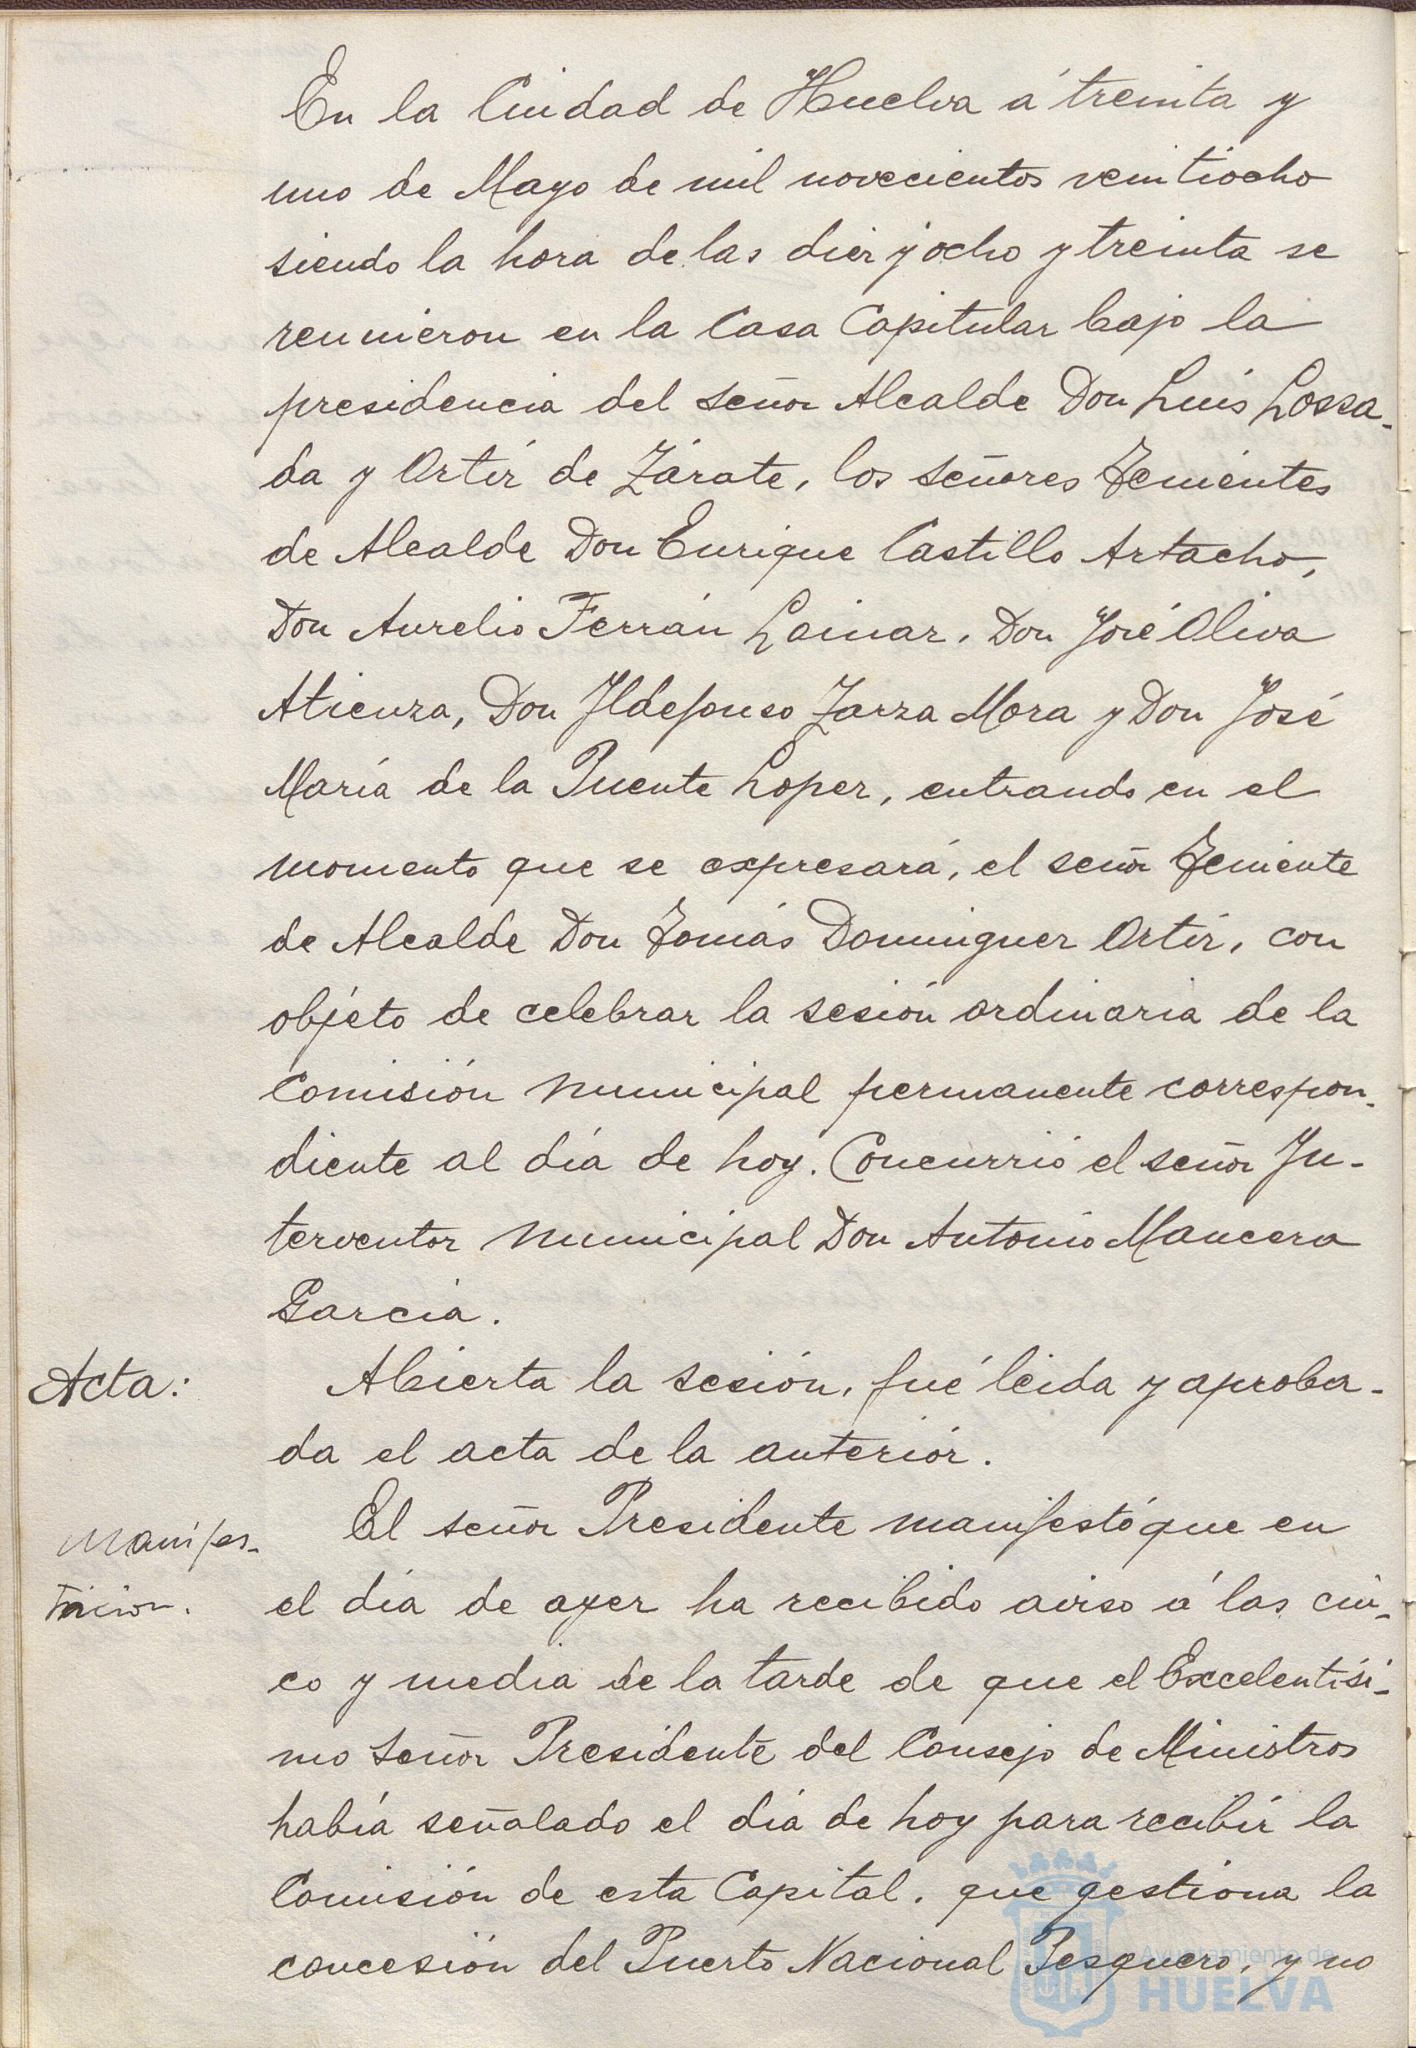 En la Ciudad de Huelva á treinta y
uno de Mayo de mil novecientos veintiocho
siendo la hora de las diez y ocho y treinta se
reunieron en la Casa Capitular bajo la
presidencia del señor Alcalde Don Luís Lossa-
da y Ortíz de Zárate, los señores Tenientes
de Alcalde Don Enrique Castillo Artacho,
Don Aurelio Ferrán Lainar, Don José Oliva
Atienza, Don Ildefonso Zarza Mora y Don José
María de la Puente López, entrando en el
momento que se expresará, el señor Teniente
de Alcalde Don Tomás Dominguez Ortíz, con
objeto de celebrar la sesión ordinaria de la
Comisión municipal permanente correspon-
diente al día de hoy. Concurrió el señor In-
terventor municipal Don Antonio Mancera
García.
Acta: Abierta la sesión, fué leida y aproba-
da el acta de la anteriór.
Manifes- El señor Presidente manifestó que en
tacion. el día de ayer ha recibido aviso á las cin-
co y media de la tarde de que el Excelentísi-
mo señor Presidente del Consejo de Ministros
había señalado el día de hoy para recibír la
Comisión de esta Capital, que gestiona la
concesión del Puerto Nacional Pesquero, y no
Ayuntamiento de
HUELVA